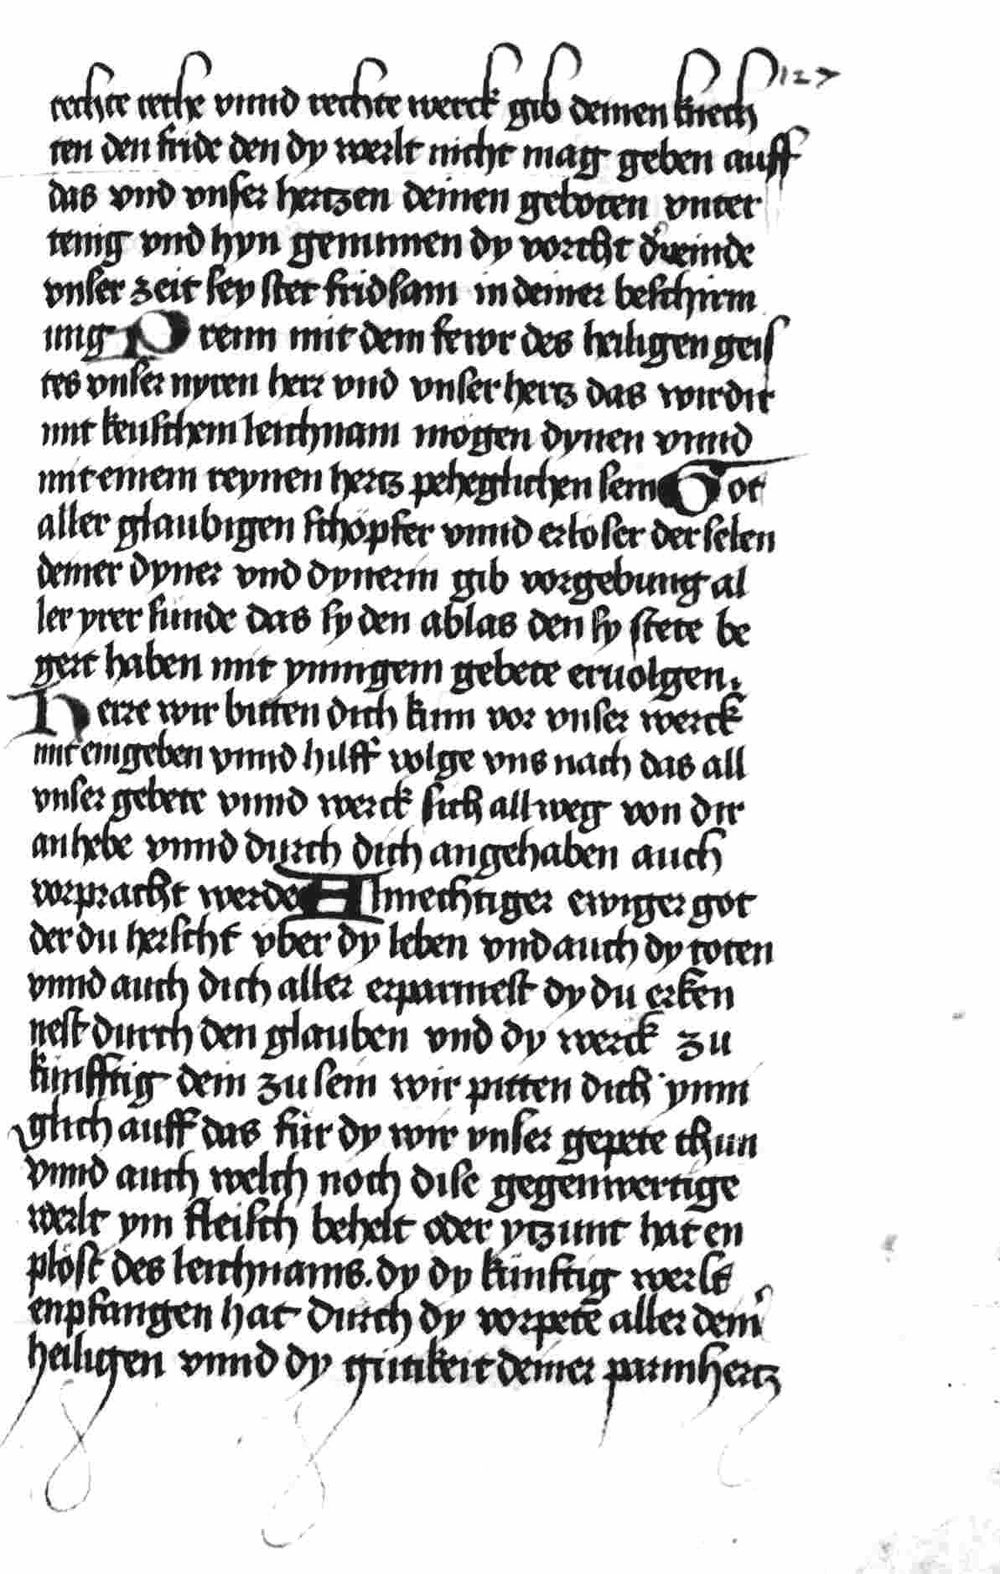 127
rechte rethe vnnd rechte werck gib deinen knech
ten den fride den dy werlt nicht mag geben auff
das vnd vnser hertzen deinen geboten vnter
tenig vnd hyn genumen dy vorcht d veinde
vnser zeit sey stet fridsam in deiner beschirm
ung Prenn mit dem fewr des heiligen geis
tes vnser nyren herr vnd vnser hertz das wir dir
mit keuschem leichnam mögen dynen vnnd
mit einem reynen hertz peheglichen sein Got
aller glaubigen schöpfer vnnd erlöser der selen
deiner dyner vnd dynerin gib vorgebung al
ler yrer sunde das sy den ablas den sy stete be
gert haben mit ynnigem gebete eruolgen.
Herre wir bitten dich kum vor vnser werck
mit eingeben vnnd hilff volge vns nach das all
vnser gebete vnnd werck sich allweg von dir
anhebe vnnd durch dich angehaben auch
vorpracht werde Almechtiger ewiger got
der du herscht vber dy leben vnd auch dy toten
vnnd auch dich aller erparmest dy du erken
nest durch den glauben vnd dy werck zu
künfftig dein zu sein wir pitten dich ynni
glich auff das für dy wir vnser gepete thun
vnnd auch welch noch dise gegenwertige
werlt ym fleisch behelt oder ytzunt hat en
plöst des leichnams. dy dy künftig werlt
enpfangen hat durch dy vorpete aller deiner
heiligen vnnd dy gütikeit deiner parmhertz